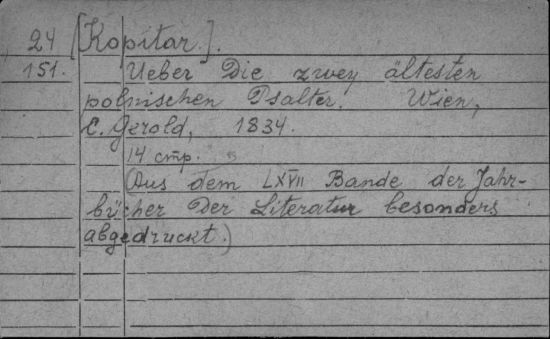 24 [Kopitar.].
151. Ueber Die zwey ältesten
polnischen Psalter. Wien,
C. Gerold, 1834.
14 стр.
(Aus dem LXVII Bande der Jahr-
bücher Der Literatur besonders
abgedruckt.)